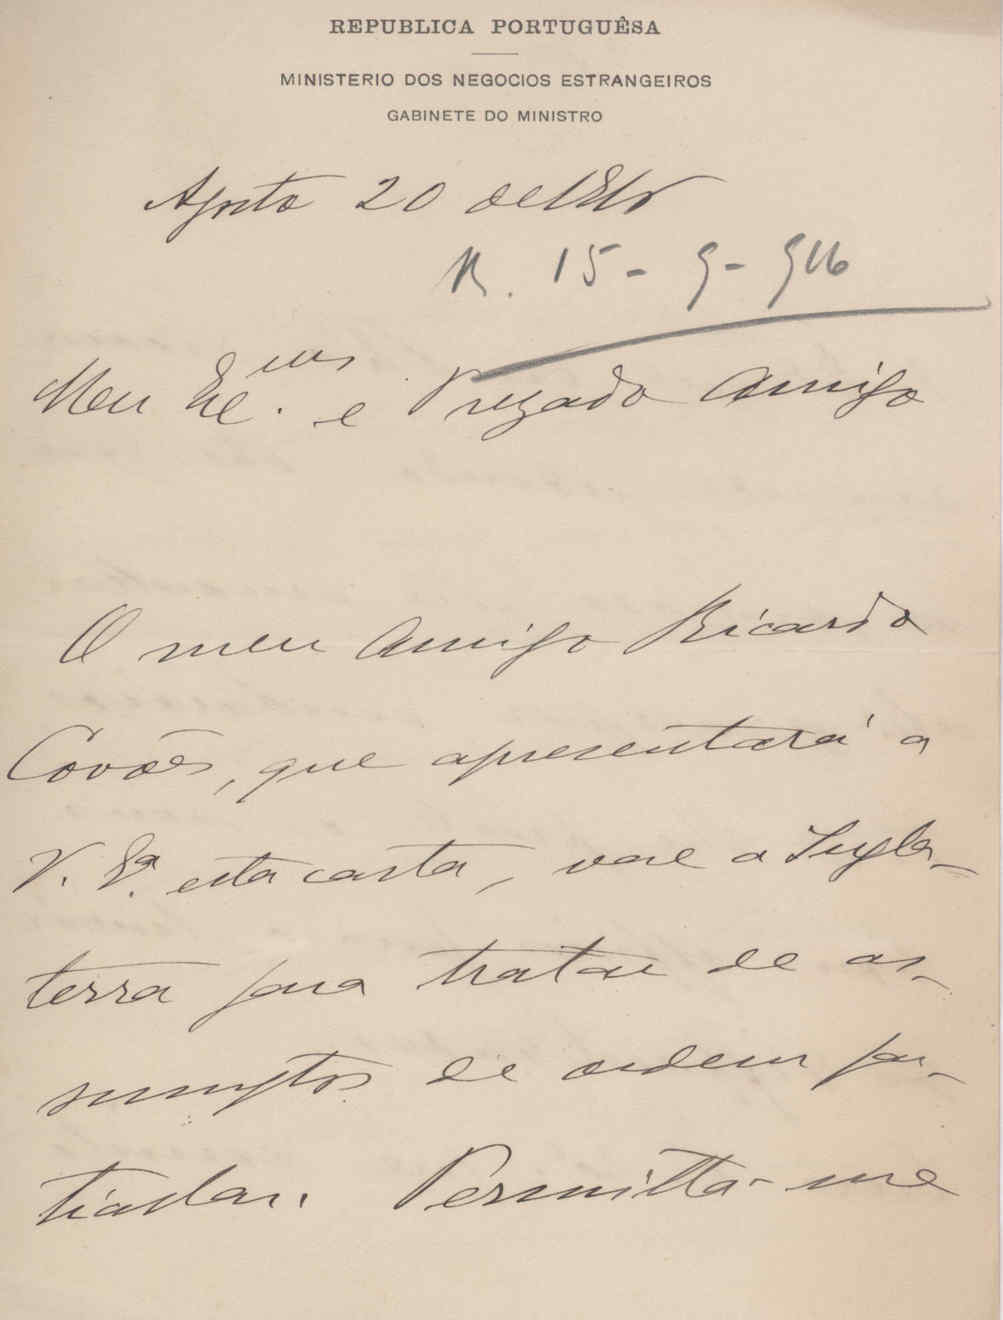 REPUBLICA PORTUGUÊSA
MINISTERIO DOS NEGOCIOS ESTRANGEIROS
GABINETE DO MINISTRO
Agosto 20 de 1916
R. 15-9-916
Meu Exc.mo e Prezado Amigo
O meu Amigo Ricardo
Covões, que apresentará a
V. Eª. esta carta, vae a Ingla-
terra para tratar de as-
sumptos de ordem par-
ticular. Permitta-me